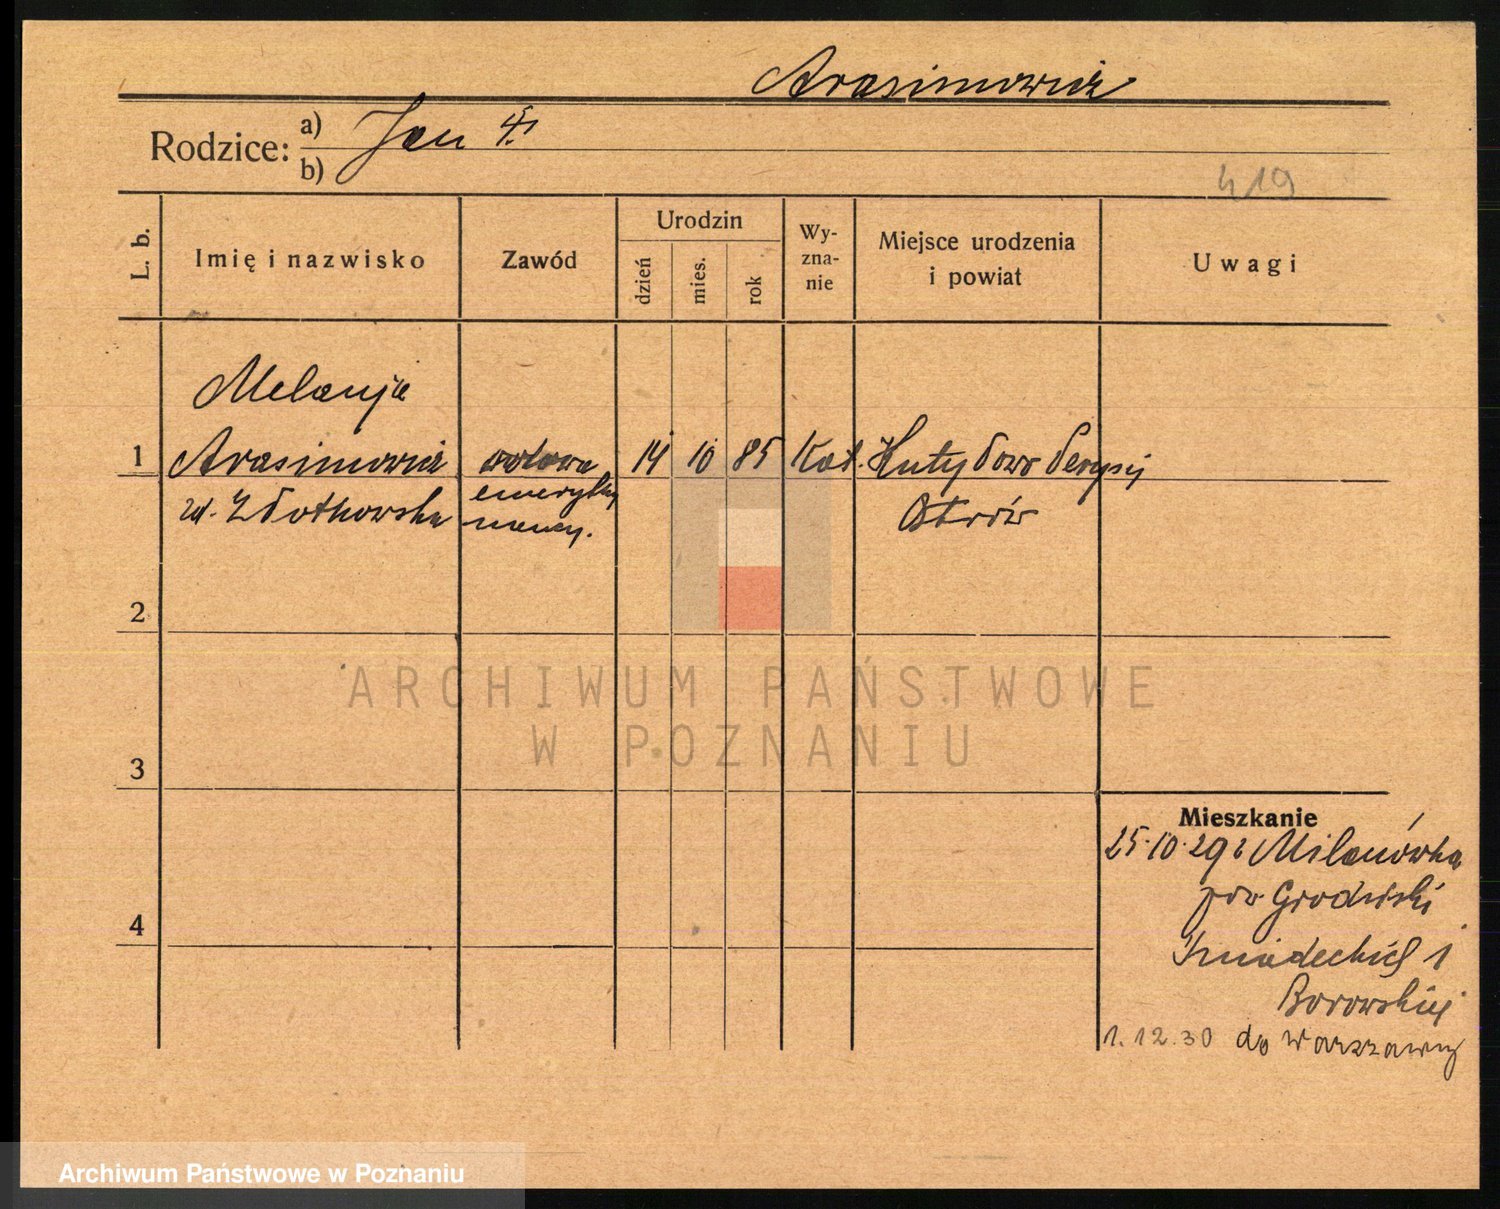 Arasimowicz
Rodzice: a) Jan
b)
419
L. b.
Imię i nazwisko
Zawód
Urodzin
dzień
mies.
rok
Wy-
zna-
nie
Miejsce urodzenia
i powiat
Uwagi
Melanja
1 Arasimowicz wdowa 14 10 85 Kat. Huty
emerytka
Ostrów
2
3
4
ARCHIWUM PAŃSTWOWE
W POZNANIU
Mieszkanie
25.10.29 z Milanówka
pow Grodziski
Śniadeckich 1
Borowskiej
1.12.30 do Warszawy
Archiwum Państwowe w Poznaniu